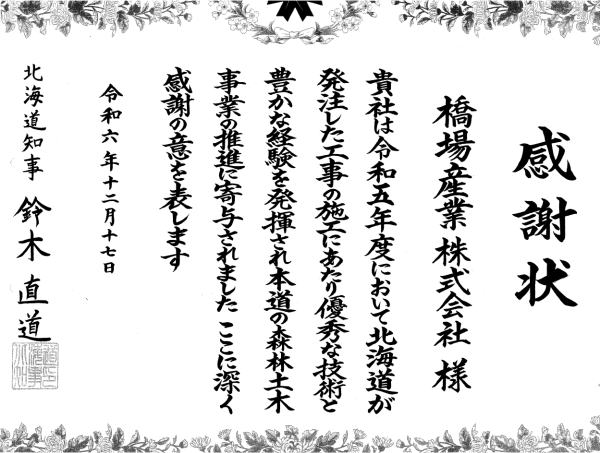 感謝状
橋場産業株式会社 様
貴社は令和五年度において北海道が
発注した工事の施工にあたり優秀な技術と
豊かな経験を発揮され本道の森林土木
事業の推進に寄与されました ここに深く
感謝の意を表します
令和六年十二月十七日
北海道知事 鈴木直道